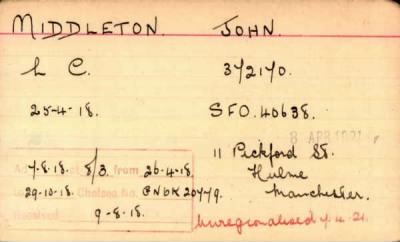 MIDDLETON. JOHN.
L C. 372170.
25-4-18. SFO. 40638.
8 APR 1921
11 Pickford St.
7-8-18. 8/3. from 26-4-18. Hulme
29-10-18. Chelsea No. CNBK 20779. Manchester.
Received 9-8-18.
Unregionalised 7.4.21.